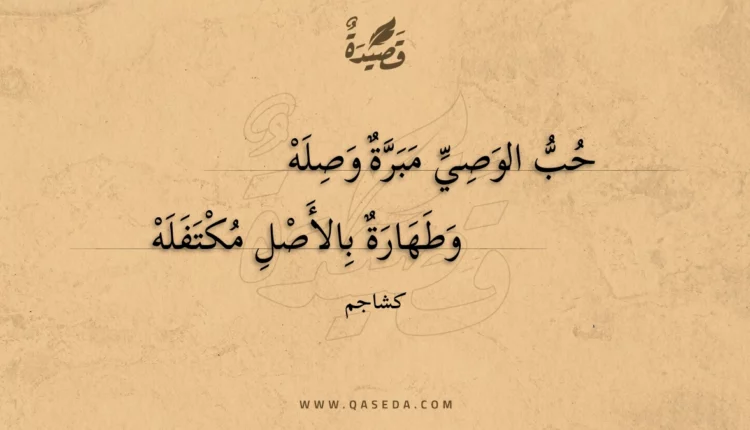 قَصِيْدَةٌ
حُبُّ الوَصِيِّ مَبَرَّةٌ وَصِلَهْ
وَطَهَارَةٌ بِالأَصْلِ مُكْتَفَلَهْ
كشاجم
WWW.QASEDA.COM